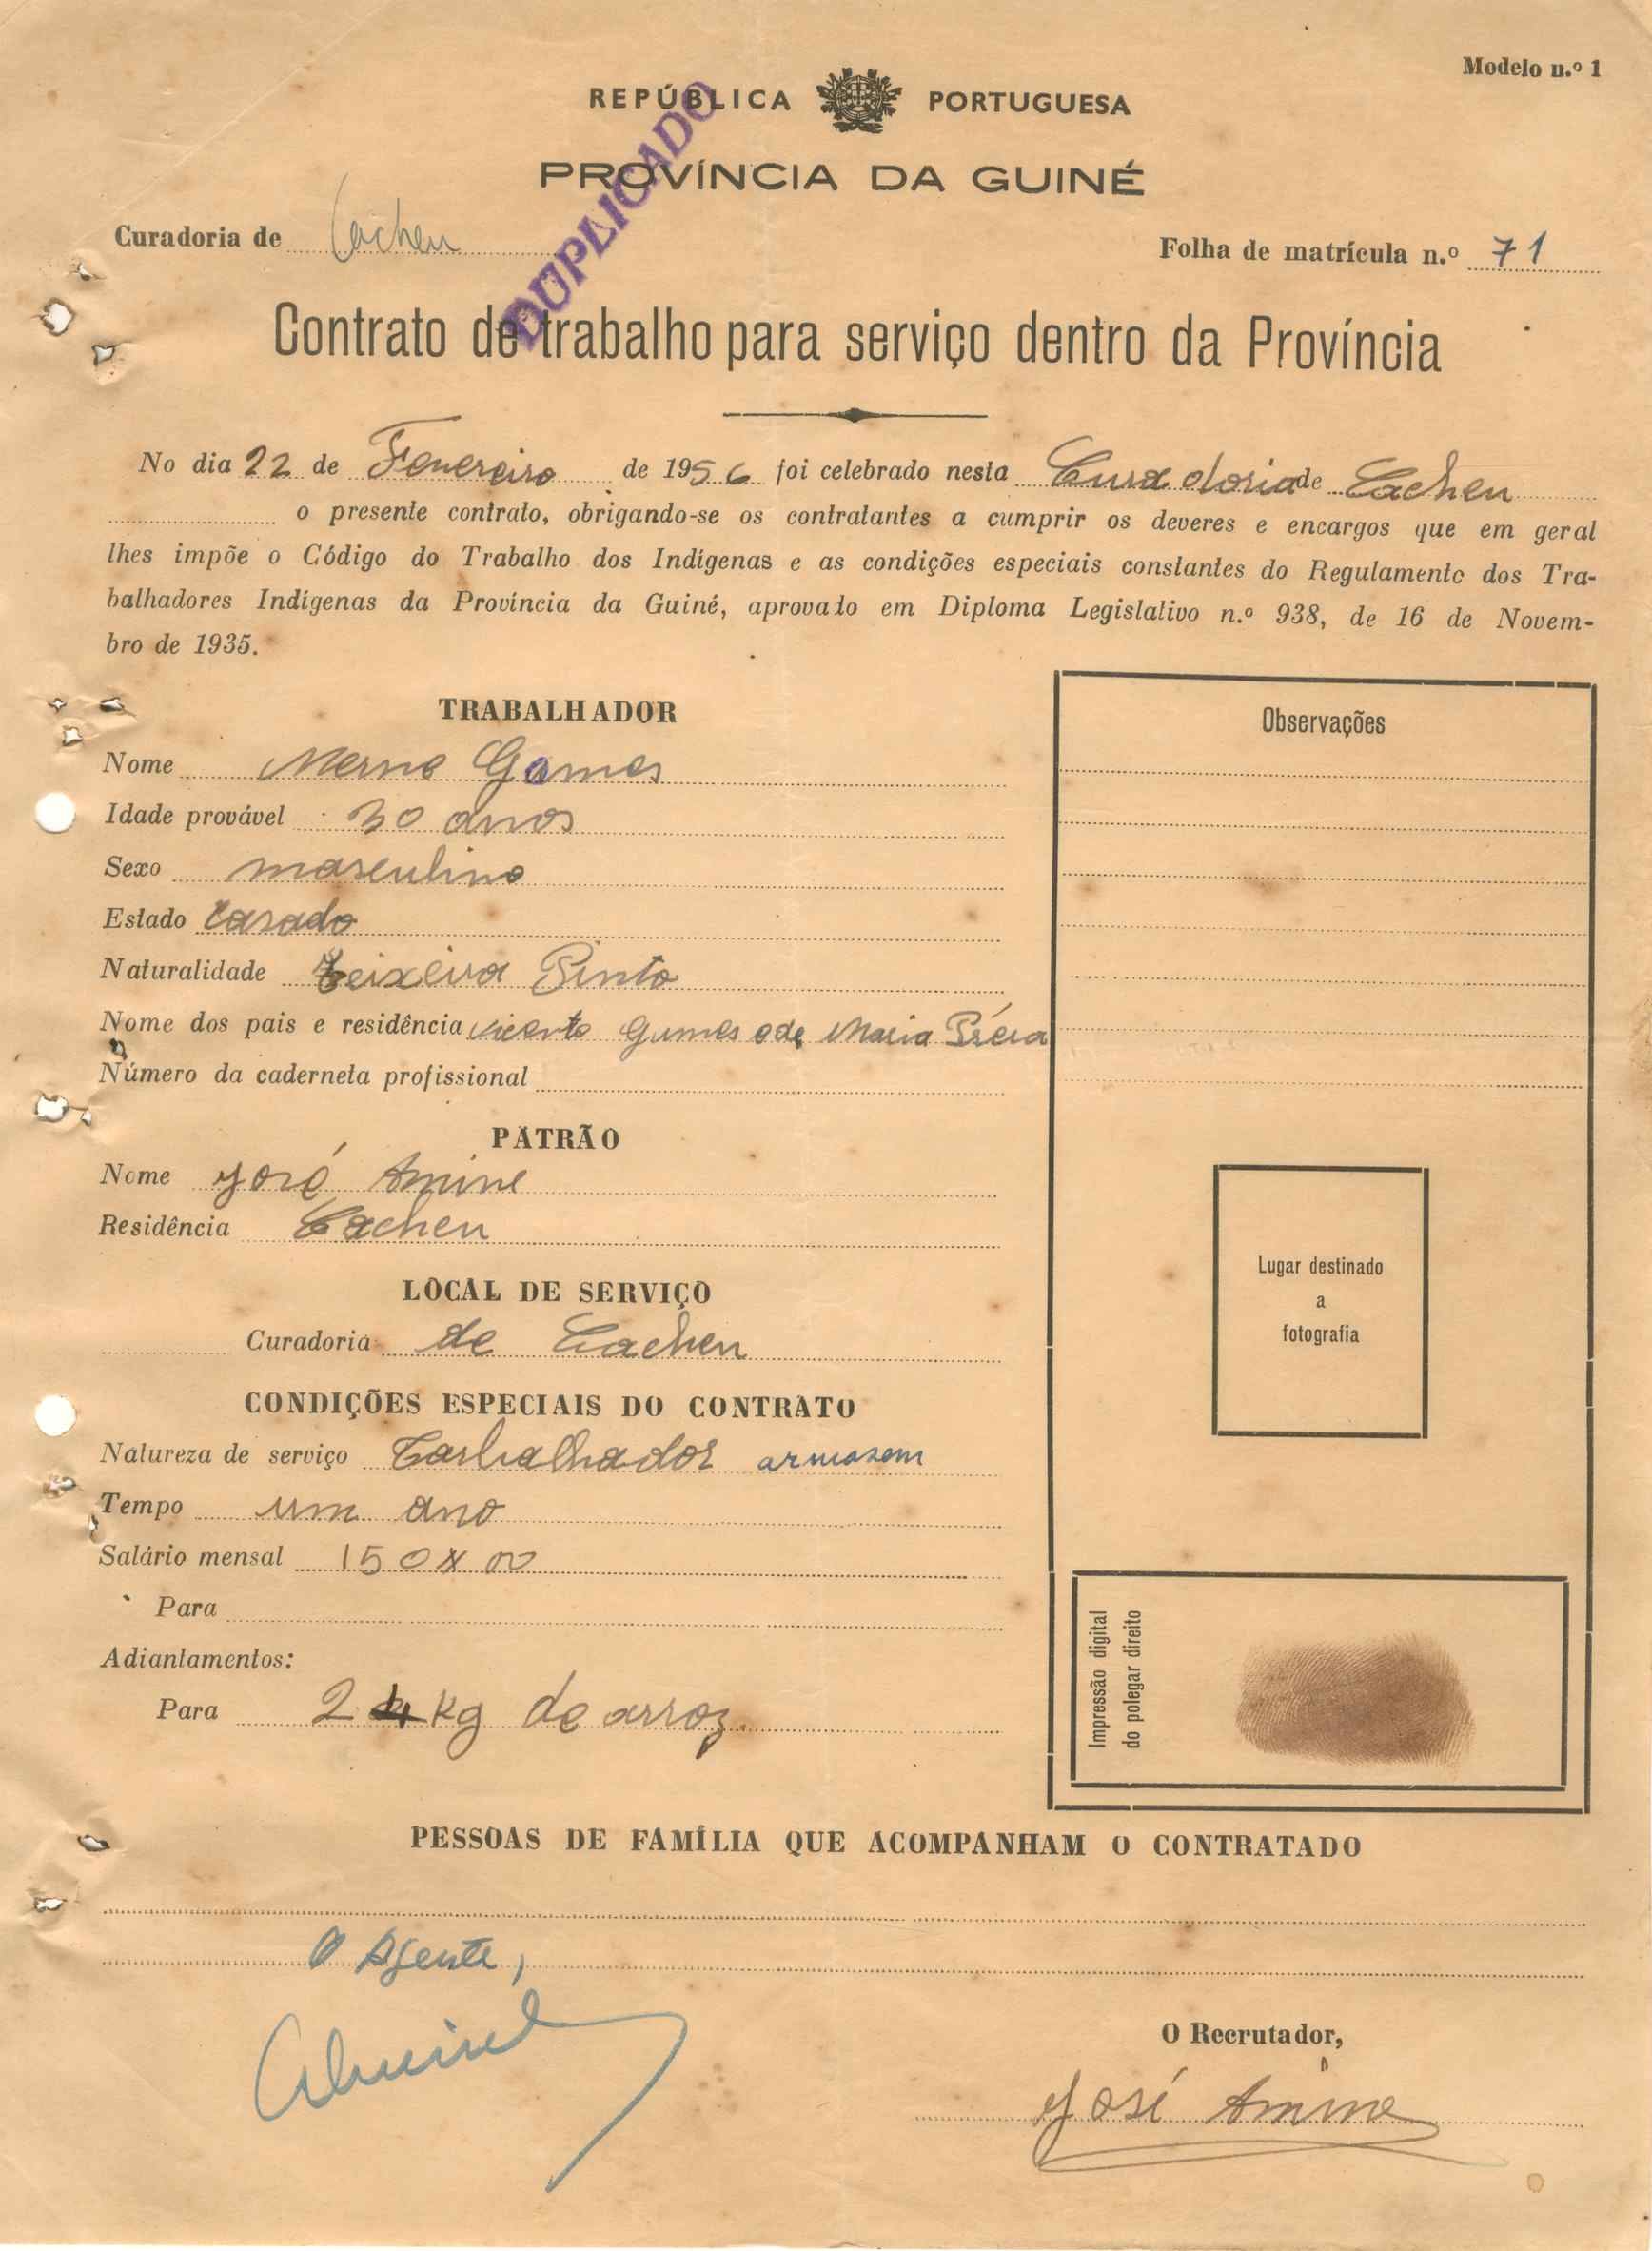 Modelo n.º 1
REPÚBLICA PORTUGUESA
DUPLICADO
PROVÍNCIA DA GUINÉ
Curadoria de Cacheu
Folha de matrícula n.º 71
Contrato de trabalho para serviço dentro da Província
No dia 22 de Fevereiro de 1956 foi celebrado nesta Curadoria de Cacheu
o presente contrato, obrigando-se os contratantes a cumprir os deveres e encargos que em geral
lhes impõe o Código do Trabalho dos Indígenas e as condições especiais constantes do Regulamento dos Tra-
balhadores Indígenas da Província da Guiné, aprovado em Diploma Legislativo n.º 938, de 16 de Novem-
bro de 1935.
TRABALHADOR
Nome Gomes
Idade provável 30 anos
Sexo masculino
Estado Casado
Naturalidade Teixeira Pinto
Nome dos pais e residência Vicente Gumes e de Maria
Número da caderneta profissional
PATRÃO
Nome José Amine
Residência Cacheu
LOCAL DE SERVIÇO
Curadoria de Cacheu
CONDIÇÕES ESPECIAIS DO CONTRATO
Natureza de serviço Tarbalhador armazem
Tempo um ano
Salário mensal 150$00
Para
Adiantamentos:
Para 24 kg de arroz.
Observações
Lugar destinado
a
fotografia
Impressão digital
do polegar direito
PESSOAS DE FAMÍLIA QUE ACOMPANHAM O CONTRATADO
O Agente,
O Recrutador,
José Amine